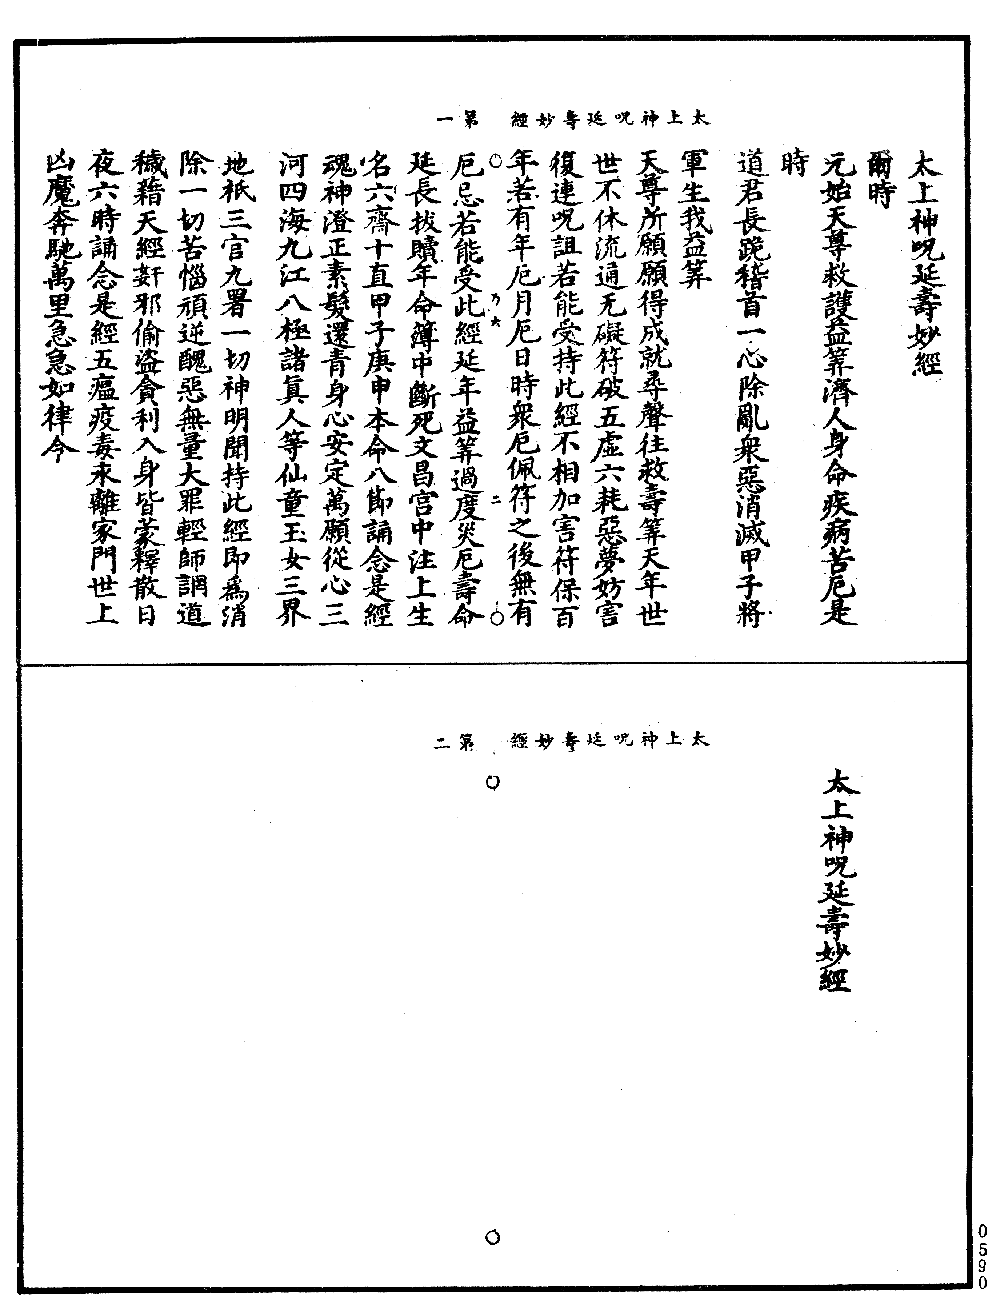 太上神呪延壽妙經　第一
太上神呪延壽妙經
爾時
元始天尊救護益筭濟人身命疾病苦厄是
時
道君長跪稽首一心除亂衆惡消滅甲子將
軍生我益筭
天尊所願願得成就尋聲往救壽筭天年世
世不休流通无礙符破五虛六耗惡夢妨害
復連呪詛若能受持此經不相加害符保百
年若有年厄月厄日時衆厄佩符之後無有
力六　二
厄忌若能受此經延年益筭過度災厄壽命
延長拔贖年命簿中斷死文昌宮中注上生
名六齋十直甲子庚申本命八節誦念是經
魂神澄正素髮還青身心安定萬願從心三
河四海九江八極諸眞人等仙童玉女三界
地祇三官九署一切神明聞持此經即爲消
除一切苦惱頑逆醜惡無量大罪輕師謂道
穢藉天經奸邪偷盜貪利入身皆蒙釋散日
夜六時誦念是經五瘟疫毒永離家門世上
凶魔奔馳萬里急急如律令
太上神呪延壽妙經　第二
太上神呪延壽妙經
0590